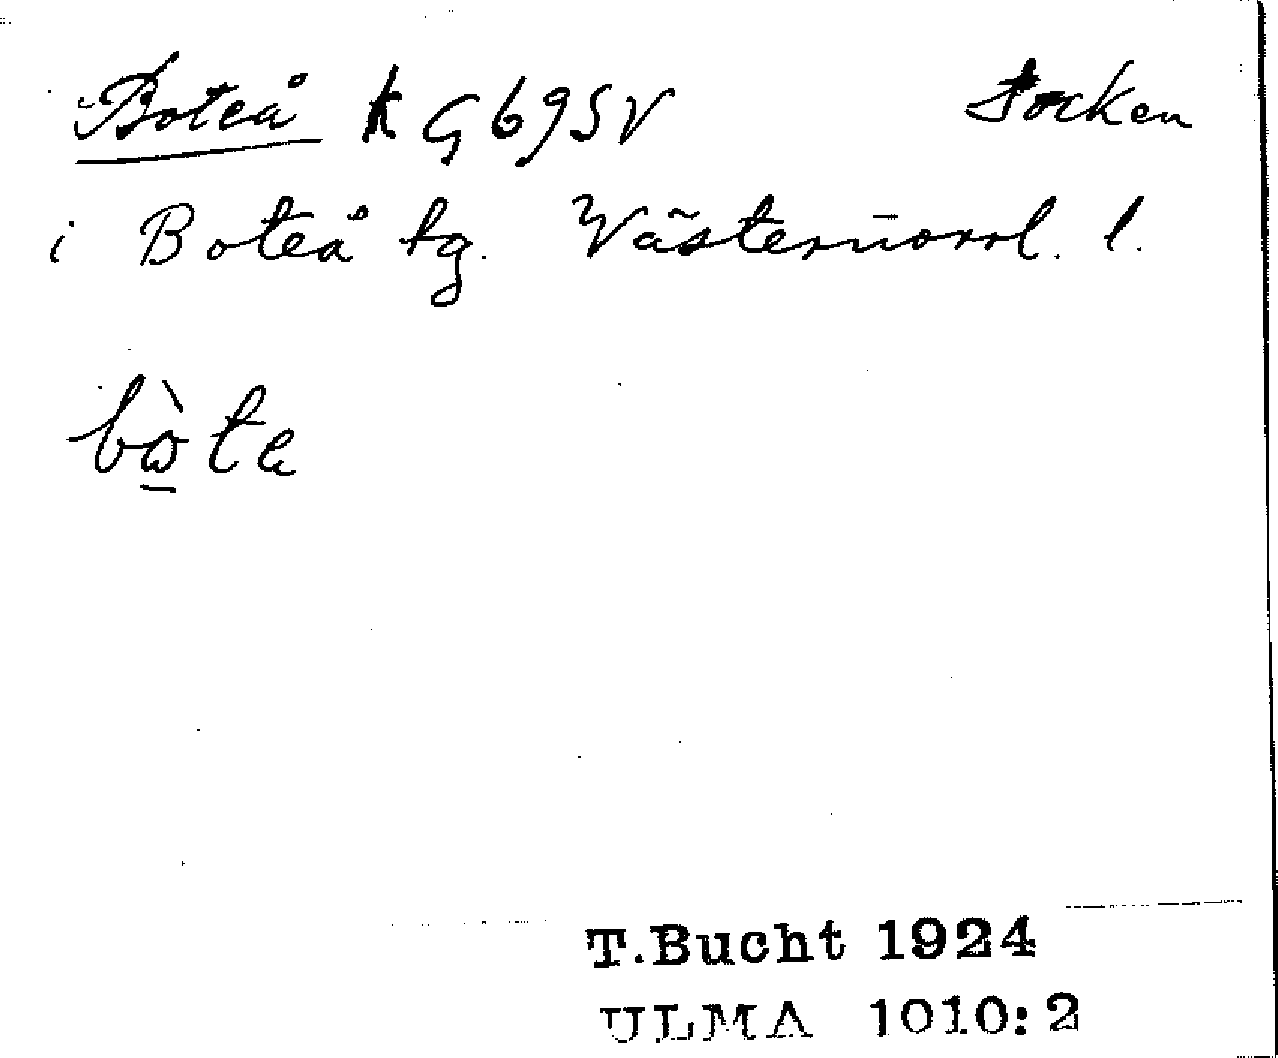 Boteå k G69SV Socken
i Boteå tg. Västernorrl. l.
bò̱te
T.Bucht 1924
ULMA 1010:2